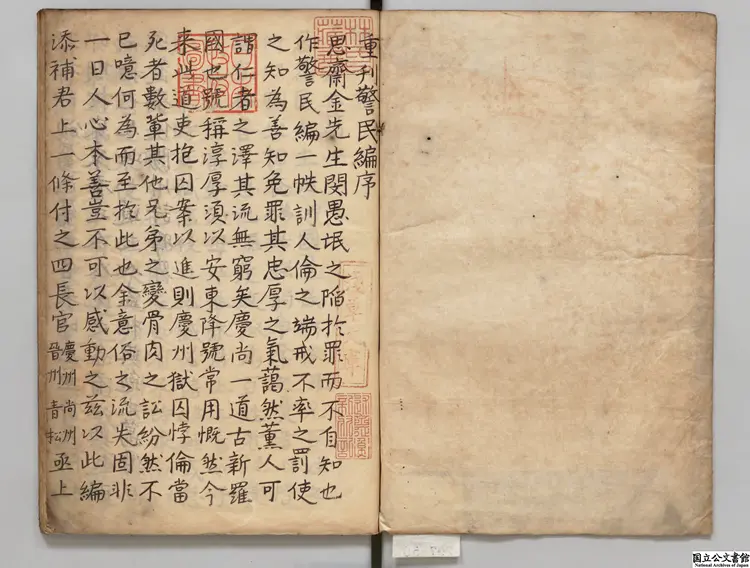 重刊警民編序
思齋金先生閔愚氓之陷於罪而不自知也
作警民編一帙訓人倫之端戒不率之罰使
之知為善知免罪其忠厚之氣藹然薰人可
謂仁者之澤其流無窮矣慶尚一道古新羅
國也號稱淳厚須以安東降號常用慨然今
来此道吏抱囚案以進則慶州獄囚悖倫當
死者數軰其他兄弟之變骨肉之訟紛然不
已噫何為而至於此也余意俗之流失固非
一日人心本善豈不可以感動之兹以此編
添補君上一條付之四長官慶州尚州晉州青松亟上
国立公文書館
National Archives of Japan